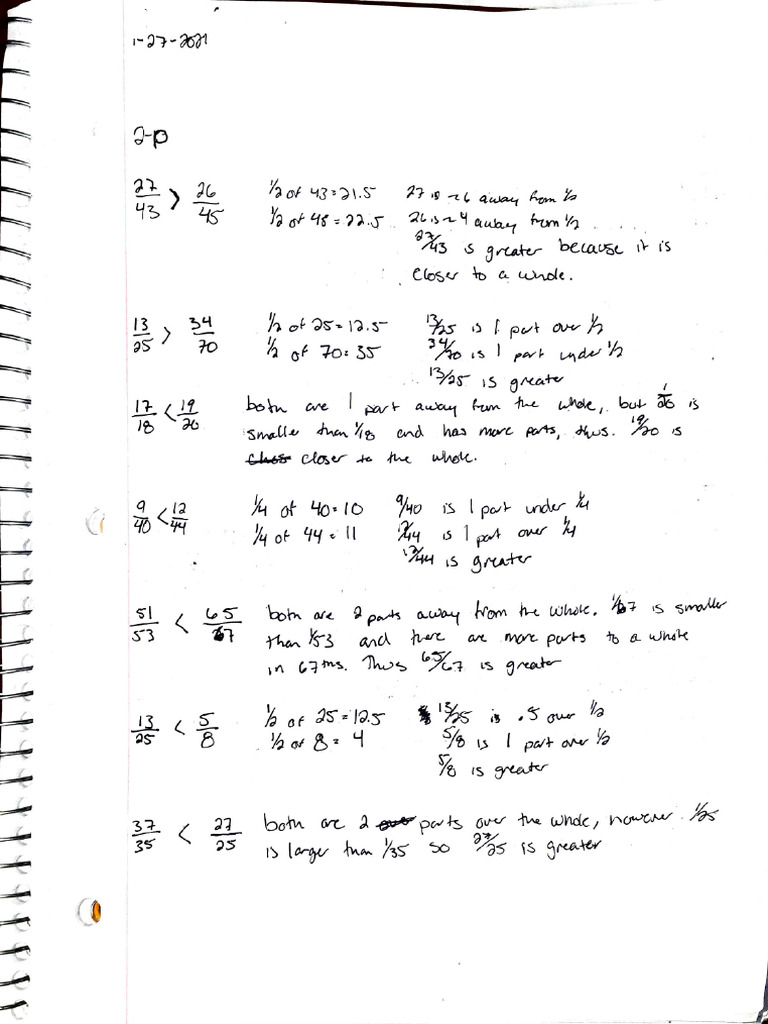 1-27-2021
2-p
27/43 > 26/45 1/2 of 43 = 21.5 27 is ~6 away from 1/2
1/2 of 48 = 22.5 26 is ~4 away from 1/2
27/43 is greater because it is
closer to a whole.
13/25 > 34/70 1/2 of 25 = 12.5 13/25 is 1 part over 1/2
1/2 of 70 = 35 34/70 is 1 part under 1/2
13/25 is greater
17/18 < 19/20 both are 1 part away from the whole, but 1/20 is
smaller than 1/18 and has more parts, thus. 19/20 is
closer to the whole.
9/40 < 12/44 1/4 of 40 = 10 9/40 is 1 part under 1/4
1/4 of 44 = 11 12/44 is 1 part over 1/4
12/44 is greater
51/53 < 65/67 both are 2 parts away from the whole. 1/67 is smaller
than 1/53 and there are more parts to a whole
in 67ths. Thus 65/67 is greater
13/25 < 5/8 1/2 of 25 = 12.5 13/25 is .5 over 1/2
1/2 of 8 = 4 5/8 is 1 part over 1/2
5/8 is greater
37/35 < 27/25 both are 2 parts over the whole, however 1/25
is larger than 1/35 so 27/25 is greater